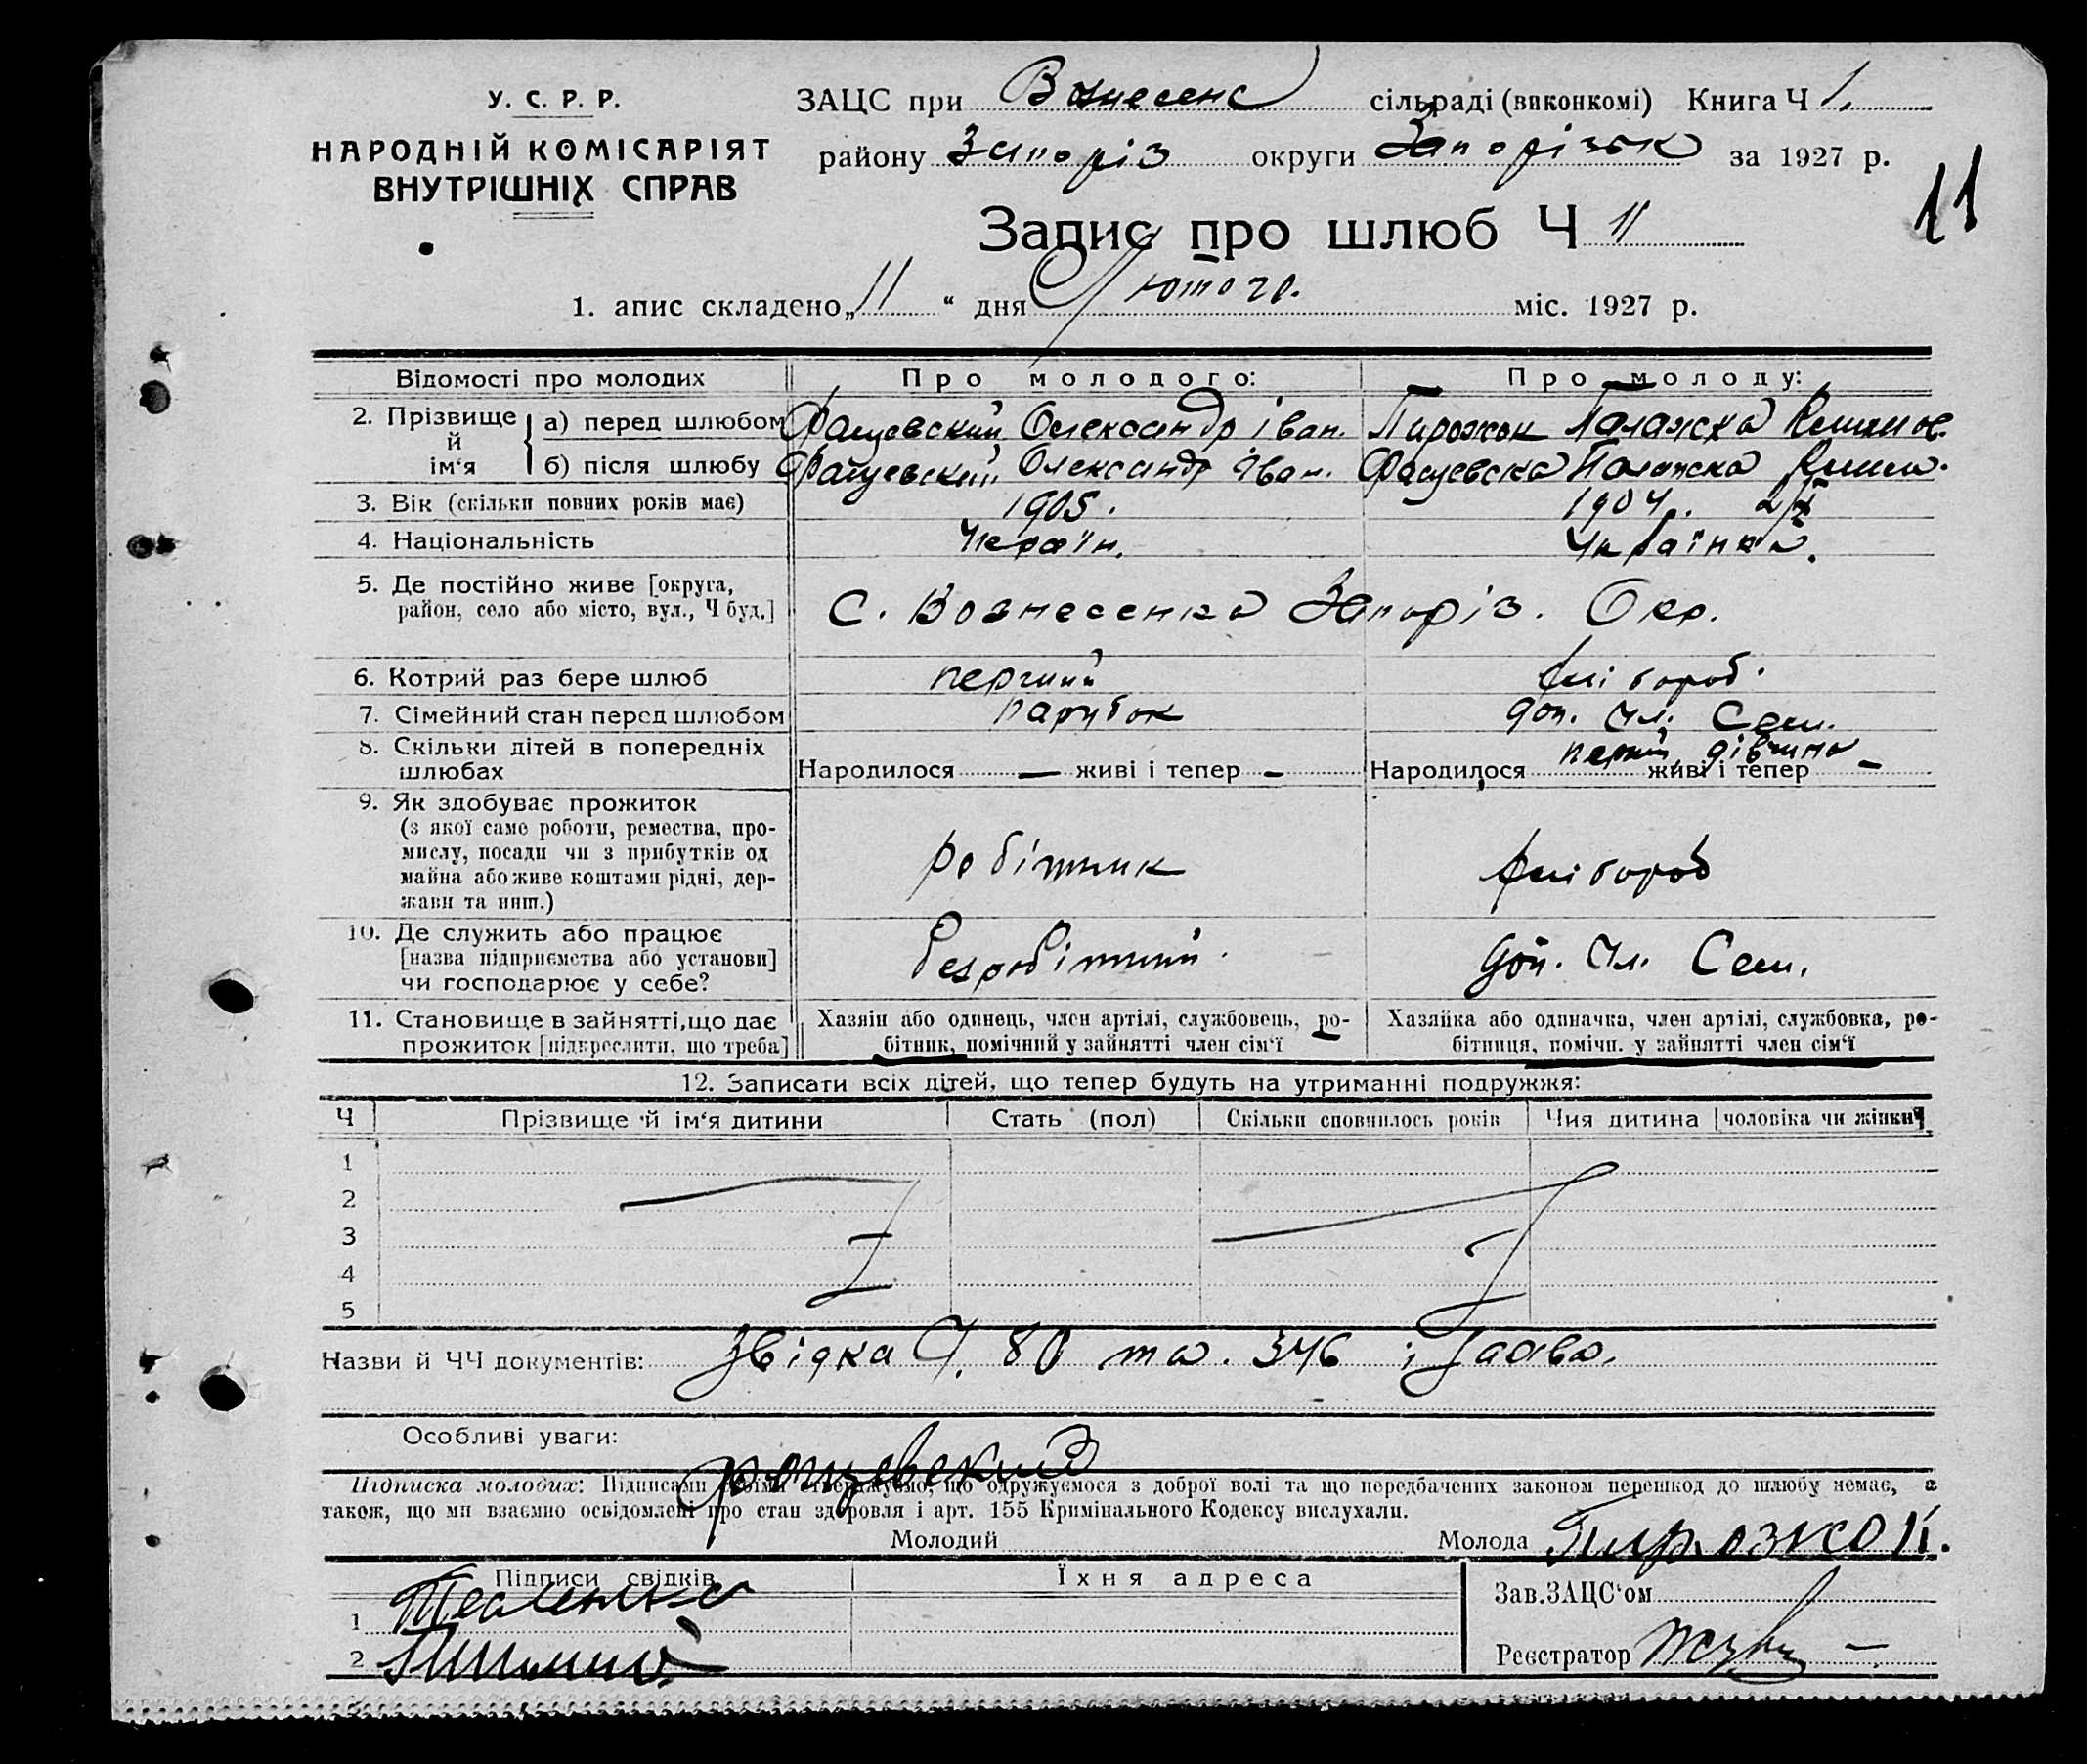 У. С. Р. Р.
НАРОДНІЙ КОМІСАРІЯТ
ВНУТРІШНІХ СПРАВ
ЗАЦС при Вознесенс сільраді (виконкомі) Книга Ч 1.
району Запоріз округи Запорізьк за 1927 р.
11
Запис про шлюб Ч 11
1. апис складено „11“ дня Лютого. міс. 1927 р.
Відомості про молодих
Про молодого:
Про молоду:
2. Прізвище й ім‘я
а) перед шлюбом
Фащевский Олександр Іван.
Пирожок Палажка
б) після шлюбу
Фащевский Олександр Іван.
Фащевска Палажка
3. Вік (скільки повних років має)
1905.
1904.
4. Національність
Україн.
Українка.
5. Де постійно живе [округа,
район, село або місто, вул., Ч буд.]
С. Вознесенка Запоріз. Окр.
6. Котрий раз бере шлюб
перший
хлібороб.
7. Сімейний стан перед шлюбом
парубок
доп. Чл. Сем.
8. Скільки дітей в попередніх
шлюбах
Народилося — живі і тепер –
перший дівчина
Народилося живі і тепер –
9. Як здобуває прожиток
(з якої саме роботи, ремества, про-
мислу, посади чи з прибутків од
майна або живе коштами рідні, дер-
жави та инш.)
робітник
хлібороб
10. Де служить або працює
[назва підприємства або установи]
чи господарює у себе?
безробітний.
доп. Чл. Сем.
11. Становище в зайнятті, що дає
прожиток [підкреслити, що треба]
Хазяін або одинець, член артілі, службовець, ро-
бітник, помічний у зайнятті член сім‘ї
Хазяйка або одиначка, член артілі, службовка, ро-
бітниця, помічн. у зайнятті член сім‘ї
12. Записати всіх дітей, що тепер будуть на утриманні подружжя:
Ч Прізвище й ім‘я дитини Стать (пол) Скільки сповнилось років Чия дитина [чоловіка чи жінки]
1
2
3
4
5
Назви й ЧЧ документів: Звідка Ч. 80 та. 346 і
Особливі уваги:
Фащевский
Підписка молодих: Підписами своїми стверджуємо, що одружуємося з доброї волі та що передбачених законом перешкод до шлюбу немає, а
також, що ми взаємно освідомлені про стан здоровля і арт. 155 Кримінального Кодексу вислухали.
Молодий
Молода Пирозкок.
Підписи свідків
Їхня адреса
1
2
Зав.ЗАЦС‘ом
Реєстратор